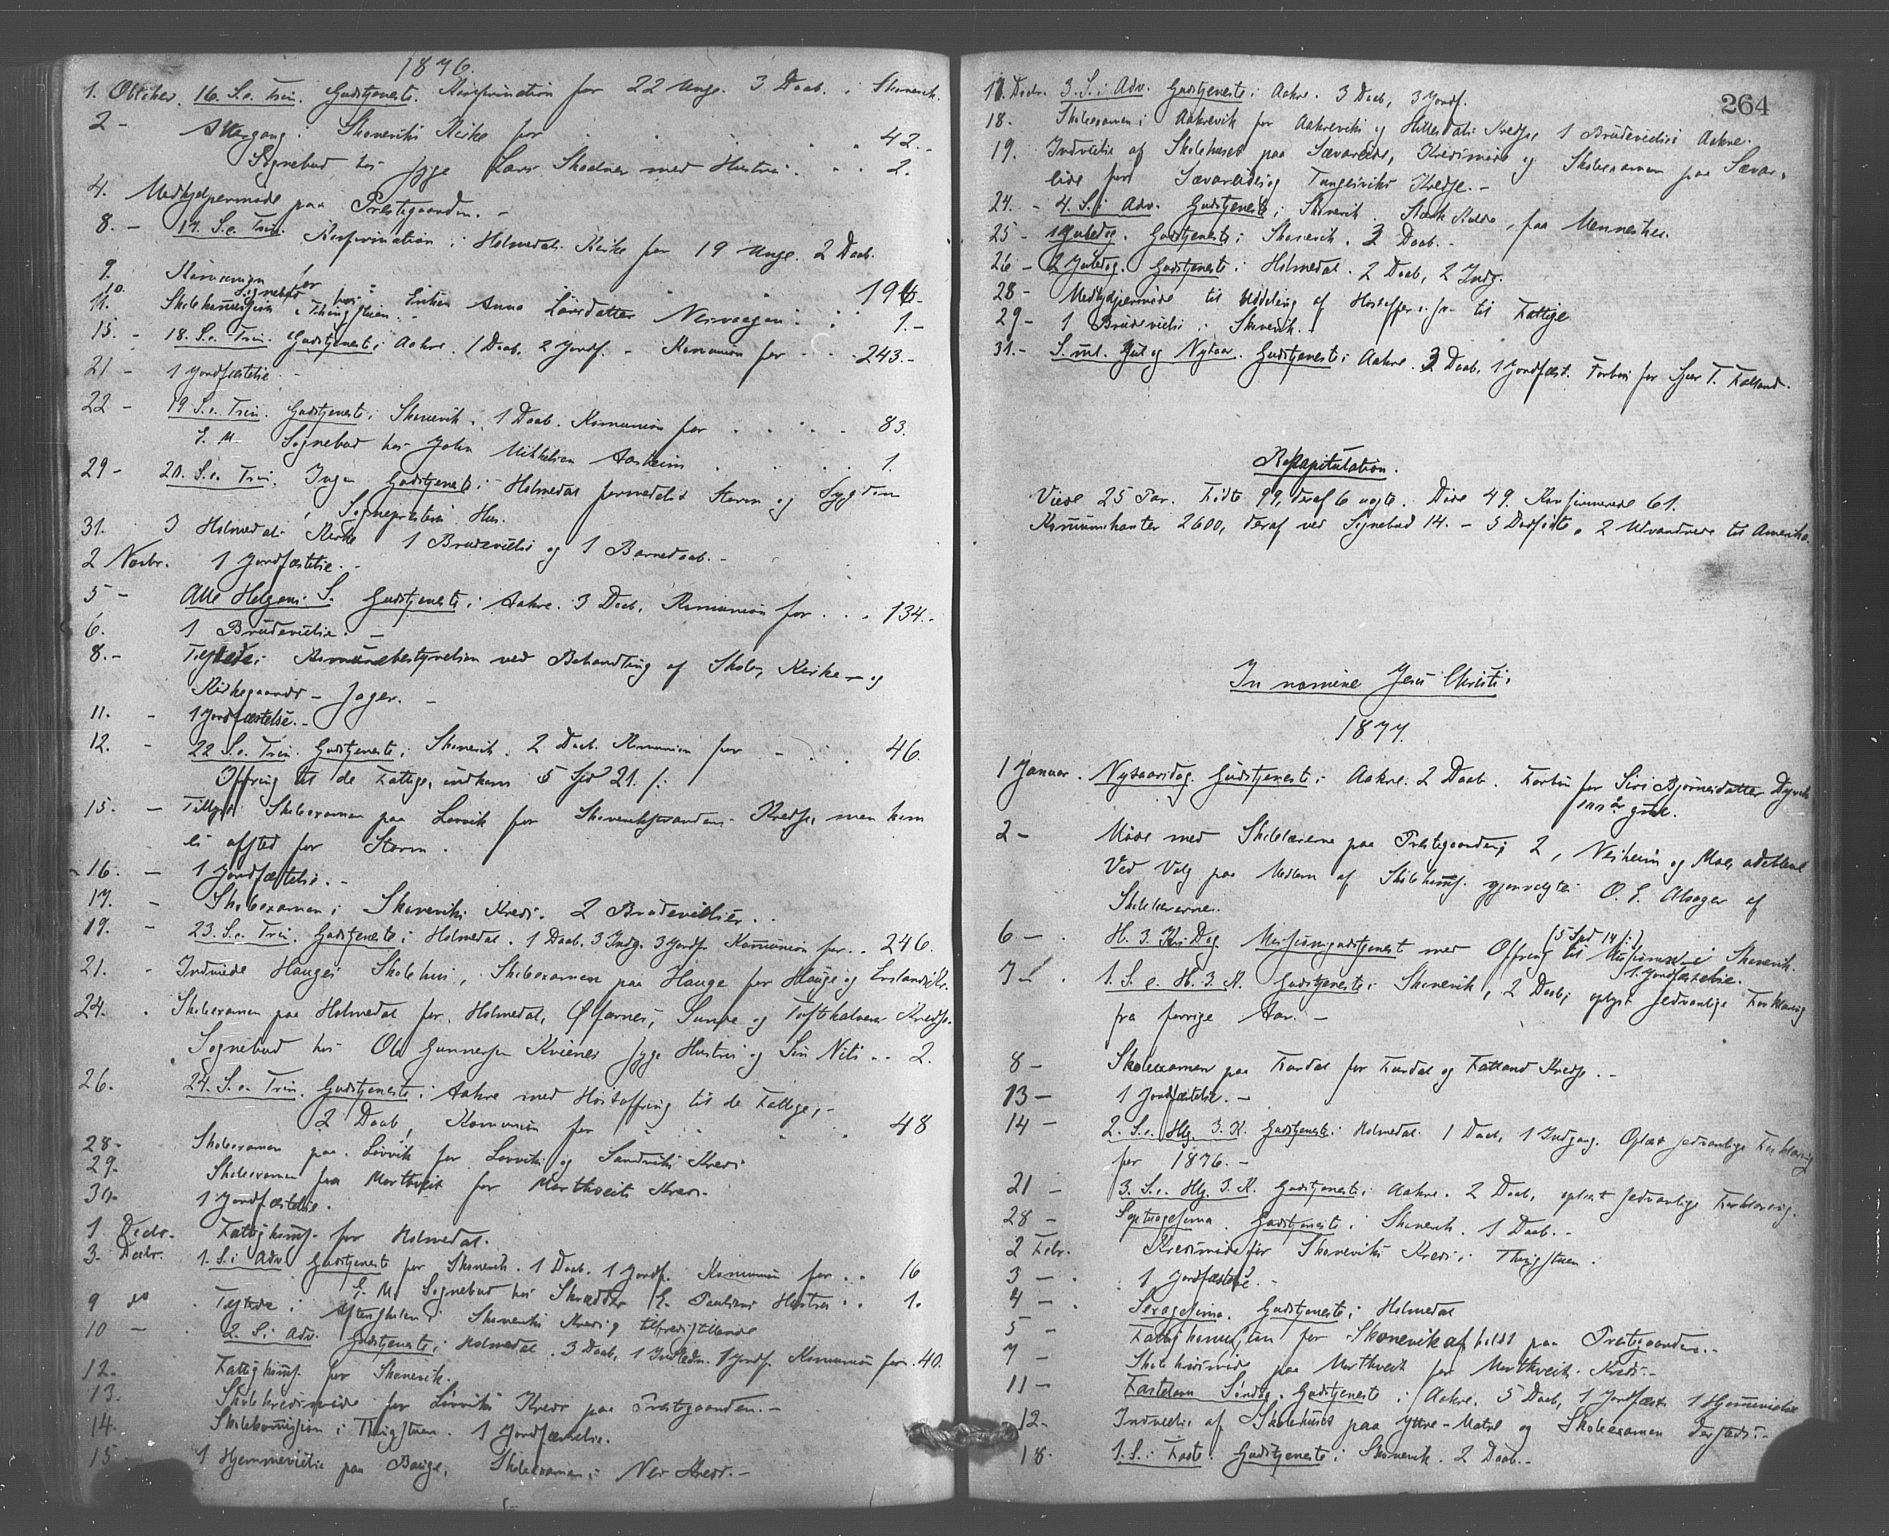 1876.
1. Oktober. 16. S. e. Trin. Gudstjeneste. Konfirmation for 22 Unge. 3 Daab. i Skonevik.
2 - Altergang i Skoneviks Kirke for . . . . 42.-
Sognebud hos syge Lars Skaalnes med Hustru. . . . 2.
4. Medhjelpermøde paa Prestegaarden. -
8. - 17. S. e. Trin. Konfirmation i Holmedals Kirke for 19 Unge. 2 Daab.
9. Kommunion for . . . . 196-
10. Sognebud hos Enken Anna Larsdatter . . . 1.-
11. Skolekommission i Thingstuen. -
15. - 18. S. e. Trin. Gudstjeneste i Aakre. 1 Daab, 2 Jordf. - Komunion for - . . 243.-
21 - 1 Jordfæstelse -
22 - 19 S. e. Trin. Gudstjeneste i Skonevik. 1 Daab. Komunion for . . . . 83.
S. M. Sognebud hos John Mikkelsen Aasheim . . . 1.
29 - 20. S. e. Trin. Ingen Gudstjeneste i Holmedal formedelst Storm og Sygdom
i Sogneprestens Hus.
31. I Holmedals Kirke 1 Brudevielse og 1 Barnedaab. -
2 Novbr. 1 Jordfæstelse. -
5 - Alle Helgens S. Gudstjeneste i Aakre. 3 Daab, Komunion for . . . 134..
6. 1 Brudevielse. -
8. - Tilstede i Komunebestyrelsen ved Behandling af Skole, Kirke - og
Kirkegaards - Sager. -
11. - 1 Jordfæstelse. -
12. - 22 S. e. Trin. Gudstjeneste i Skonevik. 2 Daab. Komunion for - . . . 46.
Offring til de Fattige, indkom 5 Spd 21 s.
15. - Tillyst Skoleexamen paa Lervik for Skonevikstrandens Kreds, men kom
ei afsted for Storm.
16. - 1 Jordfæstelse. -
17. - Skoleexamen i Skoneviks Kreds. 2 Brudevielser. .
19. - 23. S. e. Trin. Gudstjeneste i Holmedal. 1 Daab. 3 Indg. 3 Jordf. Komunion for . . 246.
21. - Indviede Hauges Skolehus, Skoleexamen paa Hauge for Hauge og
24. . Skoleexamen paa Holmedal for Holmedal, Ølfarnes, og Kredse.
Sognebud hos Ole Gunnersen Kvienes syge Hustru og Søn Nils . . 2.
26. 24. S. e. Trin. Gudstjeneste i Aakre med Høstoffring til de Fattige, -
2 Daab, Komunion for . . . . 48
28 - Skoleexamen paa Lervik for Lerviks og Sandviks Kreds
29. Skoleexamen paa Morthveit for Mortveits Kreds.
30. 1 Jordfæstelse.
1 Decbr. Fattigkomms. for Holmedal.
3. Decbr. 1. S. i Adv. Gudstjeneste for Skonevik. 1 Daab. 1 Jordf. Komunion for . . 16
S. M. Sognebud hos Skrædder E. Paulsens Hustru . . 1.
9 do . Tilstede i Aftenskolen i Skoneviks Kreds, tilfredsstillende
10 - . 2. S. i Adv. Gudstjeneste i Holmedal. 3 Daab, 1 Indledn. 1 Jordf. Komunion for . 40.
12. Fattigkomms. for Skonevik.
13. Skolekredsmøde for Lerviks Kreds paa Prestgaarden. -
14. Skolekommission i Thingstuen. 1 Jordfæstelse.
15. 1 Hjemmevielse paa Bauge, Skoleexamen i Nes Kreds. -
264
17. Decbr. 3. S. i Adv. Gudstjeneste i Aakre. 3 Daab, 3 Jordf.
18. Skoleexamen i Aakrevik for Aakreviks og Kredse, 1 Brudevielse i Aakre.
19. Indvielse af Skolehuset paa Sævareide, Kredsmøde og Skoleexamen paa Sævar-
eide for Sævareides og Tungesviks Kredse. -
24. - 4. S. i Adv. Gudstjeneste i Skonevik. Stærk Kulde, faa Mennesker.
25 - 1 Juledag. Gudstjeneste i Skonevik. 3 Daab. -
26 - 2 Juledag. Gudstjeneste i Holmedal. 2 Daab, 2 Indg.
28 - Medhjelpermøde til Uddeling af Høstoffer o. s. v. til Fattige
29 - 1 Brudevielse i Skonevik. -
31. - S. ml. Jul og Nytaar. Gudstjeneste i Aakre. 3 Daab, 1 Jordfæst. Forbøn for Sjur T. Fatland.
Rekapitulation.
Viede 25 Par. Fødte 99, deraf 6 uægte. Døde 49. Konfirmerede 61.
Kommunikanter 2600, deraf ved Sognebud 14. - 5 Dødfødte. 2 Udvandrede til Amerika.
In nomine Jesu Christi.
1877.
1 Januar. Nytaarsdag. Gudstjeneste i Aakre. 2 Daab. Forbøn for Siri Bjørnesdatter
gml.
2 - Møde med Skolelærerne paa Prestegaarden, 2, Nesheim og Moe, udeblevne
Ved Valg paa Medlem af Skolekomms. gjenvalgtes O. S. Alsager af
Skolelærerne.
6 - . H. 3. Kr. Dag Missionsgudstjeneste med Offring til Missionen i Skonevik.
(5 Spd 14 s.)
1 Jordfæstelse.
7 - . 1. S. e. H. 3. K. Gudstjeneste i Skonevik, 2 Daab, oplæst sedvanlige Forklaring
fra forrige Aar. -
8 - Skoleexamen paa Fardal for Fardal og Fatland Kredse. -
13 - 1 Jordfæstelse. -
14 - 2. S. e. Hlg. 3. K. Gudstjeneste i Holmedal. 1 Daab, 1 Indgang. Oplæst sedvanlige Forklaring
for 1876. -
21 - 3. S. e. Hlg. 3. K. Gudstjeneste i Aakre. 2 Daab, oplæst sedvanlige Forklaring.
28 - Septuagesima. Gudstjeneste i Skonevik. 1 Daab. -
2 Febr. Kredsmøde for Skoneviks Kreds i Thingstuen.
3 - . 1 Jordfæstelse. -
4 - . Sexagesima. Gudstjeneste i Holmedal
5 - Fattigkommission for Skonevik afholdt paa Prestgaarden. -
7 - Skolekredsmøde paa Mortveit for Mortveits Kreds. -
11 - Fastelavn Søndag. Gudstjeneste i Aakre. 5 Daab, 1 Jordfæst. 1 Hjemmevielse
12. - Indvielse af Skolehuset paa Yttre-Matre og Skoleexamen dersteds. -
18. 1. S. i Faste. Gudstjeneste i Skonevik. 2 Daab. -